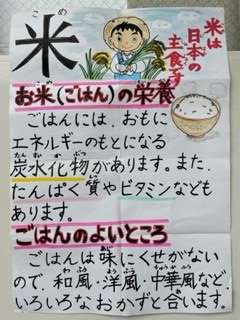 米
こめ
米は
日本の
主食です
お米(ごはん)の栄養
ごはんには、おもに
エネルギーのもとになる
炭水化物があります。また、
たんすいかぶつ
たんぱく質やビタミンなども
あります。
ごはんのよいところ
ごはんは味にくせがない
ので、和風・洋風・中華風など、
いろいろなおかずと合います。